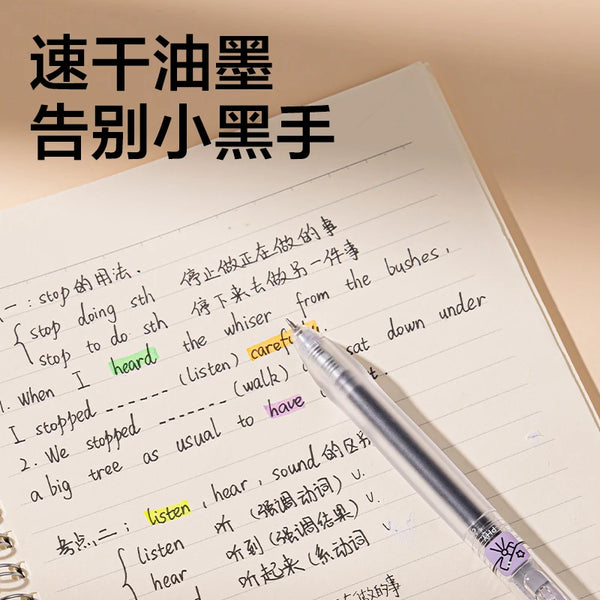 速干油墨
告别小黑手
一：stop的用法．
stop doing sth 停止做正在做的事
stop to do sth 停下来去做另一件事
1. When I heard the whiser from the bushes,
I stopped ------ (listen) carefully.
2. We stopped ------ (walk) sat down under
a big tree as usual to have
考点二：listen , hear , sound 的区别
listen 听 (强调动词) v.
hear 听到 (强调结果) v.
听起来 (系动词 v.
做的事